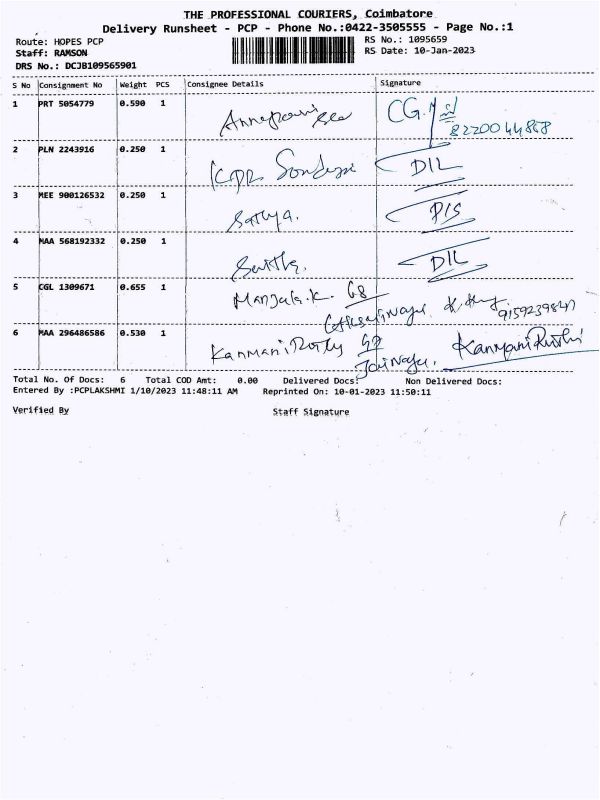 THE PROFESSIONAL COURIERS, Coimbatore
Delivery Runsheet - PCP - Phone No.:0422-3505555 - Page No.:1
Route: HOPES PCP
RS No.: 1095659
Staff: RAMSON
RS Date: 10-Jan-2023
DRS No.: DCJB109565901
S No Consignment No Weight PCS Consignee Details Signature
1 PRT 5054779 0.590 1
CG.
8220044868
2 PLN 2243916 0.250 1 KPR DIL
3 MEE 900126532 0.250 1 Sathya. P/S
4 MAA 568192332 0.250 1 DIL
5 CGL 1309671 0.655 1 Manjula.K. G8
6 MAA 296486586 0.530 1 Kanmani KanmaniRuthi
Total No. Of Docs: 6 Total COD Amt: 0.00 Delivered Docs: Non Delivered Docs:
Entered By :PCPLAKSHMI 1/10/2023 11:48:11 AM Reprinted On: 10-01-2023 11:50:11
Verified By Staff Signature